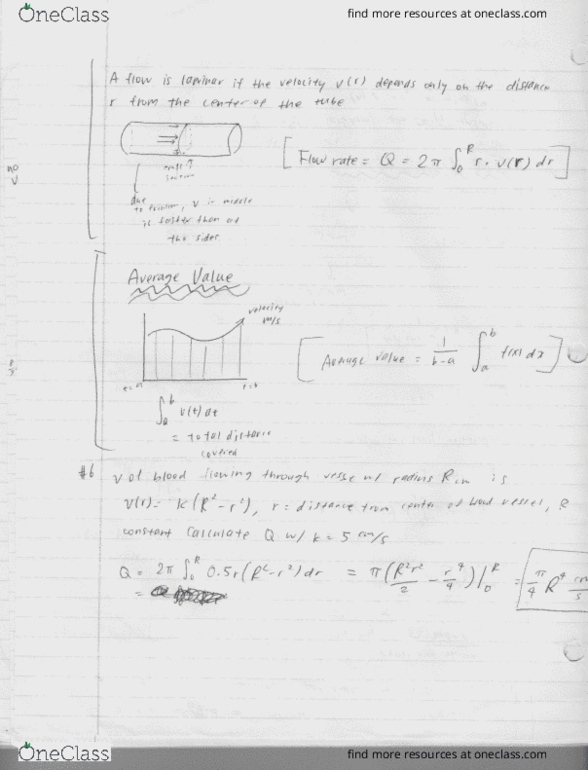 OneClass
find more resources at oneclass.com
A flow is laminar if the velocity v(r) depends only on the distance
r from the center of the tube
[Flow rate = Q = 2π ∫₀ᴿ r · v(r) dr]
due
to friction, v in middle
is faster than at
the sides
Average Value
velocity
m/s
[Average value = 1/(b-a) ∫ₐᵇ f(x) dx]
t=a
t=b
∫ₐᵇ v(t) dt
= total distance
covered
#6 v of blood flowing through vessel w/ radius R cm is
v(r) = k(R² - r²), r = distance from center of blood vessel, k
constant Calculate Q w/ k = 5 cm/s
Q = 2π ∫₀ᴿ 0.5r(R² - r²) dr = π(R²r²/2 - r⁴/4)|₀ᴿ = π/4 R⁴ cm/s
=
OneClass
find more resources at oneclass.com